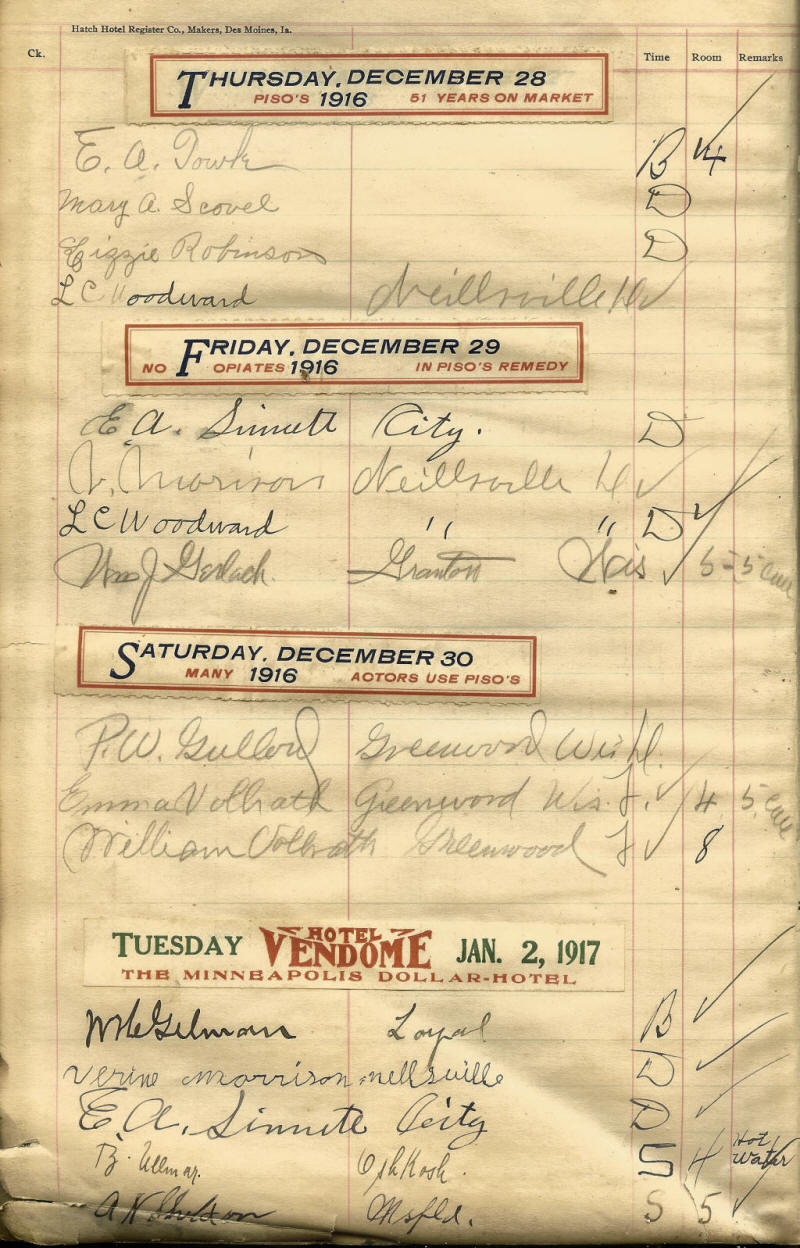 Hatch Hotel Register Co., Makers, Des Moines, Ia.
Ck. Time Room Remarks
THURSDAY, DECEMBER 28
PISO'S 1916 51 YEARS ON MARKET
E. A. B 4
Mary A. Scovel D
Lizzie Robinson D
L C Woodward Neillsville
FRIDAY, DECEMBER 29
NO OPIATES 1916 IN PISO'S REMEDY
E A. Sinnett City. D
V. Morison Neillsville
L C Woodward " " D
Wm J Gerlach. Granton Wis 5 - 5 Call
SATURDAY, DECEMBER 30
MANY 1916 ACTORS USE PISO'S
P. W. Gullord Greenwood Wis
Emma Vollrath Greenwood Wis. 4 5 Call
William Vollrath Greenwood 8
TUESDAY HOTEL VENDOME JAN. 2, 1917
THE MINNEAPOLIS DOLLAR-HOTEL
Gilman Loyal B
Verine Morrison nellsville D
E A. Sinnett City D
B. Ullmar. Oshkosh. S 4 Hot Water
A N Sheldon Msfld. S 5